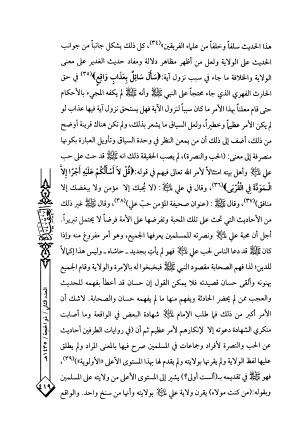 هذا الحديث سلفاً وخلفاً من علماء الفريقين»(٣٤)، كل ذلك يشكل جانباً من جوانب
الحديث على الولاية ولعل من أظهر مظاهر دلالة ومفاد حديث الغدير على معنى
الولاية والخلافة ما جاء في سبب نزول آية: ﴿سَأَلَ سَائِلٌ بِعَذَابٍ وَاقِعٍ﴾(٣٥) في حق
الحارث الفهري الذي جاء محتجاً على النبي ﷺ وأنه ﷺ لم يكفه المجيء بالأحكام
حتى قام معلناً بهذا الأمر ما كان سبباً لنزول الآية فهل يستحق نزول آية فيها عذاب لو
لم يكن الأمر عظيماً وخطيراً، ولعل السياق ما يشعر بذلك، ولم تكن هناك قرينة أوضح
من ذلك، أضف إلى ذلك أن من يمعن النظر في وحدة السياق وتأويل العبارة بكونها
منصرفة إلى معنى: (الحب والنصرة)، لم يصب الحقيقة ذلك انه ﷺ قد حث على حب
علي وأهل بيته امتثالاً لأمر الله تعالى فيهم في قوله: ﴿قُل لَا أَسْأَلُكُمْ عَلَيْهِ أَجْرًا إِلَّا
الْمَوَدَّةَ فِي الْقُرْبَى﴾(٣٦)، وقال في علي: (لا يحبك إلا مؤمن ولا يبغضك إلا
منافق)(٣٧)، وقال ﷺ: (عنوان صحيفة المؤمن حبّ علي)(٣٨)، وقال ﷺ غير ذلك
من الأحاديث التي تحث على تلك المحبة وتفرضها على الأمة فرضاً لا يحتمل تبريراً.
أجل أن محبة علي ونصرته للمسلمين يعرفها الجميع، وهو أمر مفروغ منه وإذا
كان قد دعا الناس لحب علي فهو لم يأتِ بجديد ـ حاشاه ـ وليس هذا إكمالاً
للدين؛ لذا فهم الصحابة مقصود النبي ﷺ فبخبخوا له بالإمرة والولاية وقام الجميع
يهنونه وألقى حسان قصيدته فلا يمكن القول إن حسان قد أخطأ بفهمه للحديث
والعجب ممن لم يحضر الحادثة ويفهم منها ما لم يفهمه حسان والصحابة. لاشك أن
الأمر أكبر من ذلك فما طلب الإمام شهادة البعض في الواقعة وما أصابت
منكري الشهادة دعوته إلا لإنكارهم لأمر عظيم ثم أن (في روايات الطرفين أحاديث
عن الحب والنصرة لأفراد وجماعات من المسلمين صرح فيها بالمعنى المراد ولم يطلق
عليها لفظ الولاية ولم يقرنها بولايته ولم يقدم لها بهذا المستوى الأعلى «الأولوية»)(٣٩)،
فهو ﷺ في تقديمه بـ(ألست أولى؟) يشير إلى المستوى الأعلى من ولايته على المسلمين
وبقوله: (من كنت مولاه) يقرن ولاية علي بولايته وأنها من سنخ واحد. والواقع
العدد الثاني / ذو الحجة / ١٤٣٥هـ
٤١٩